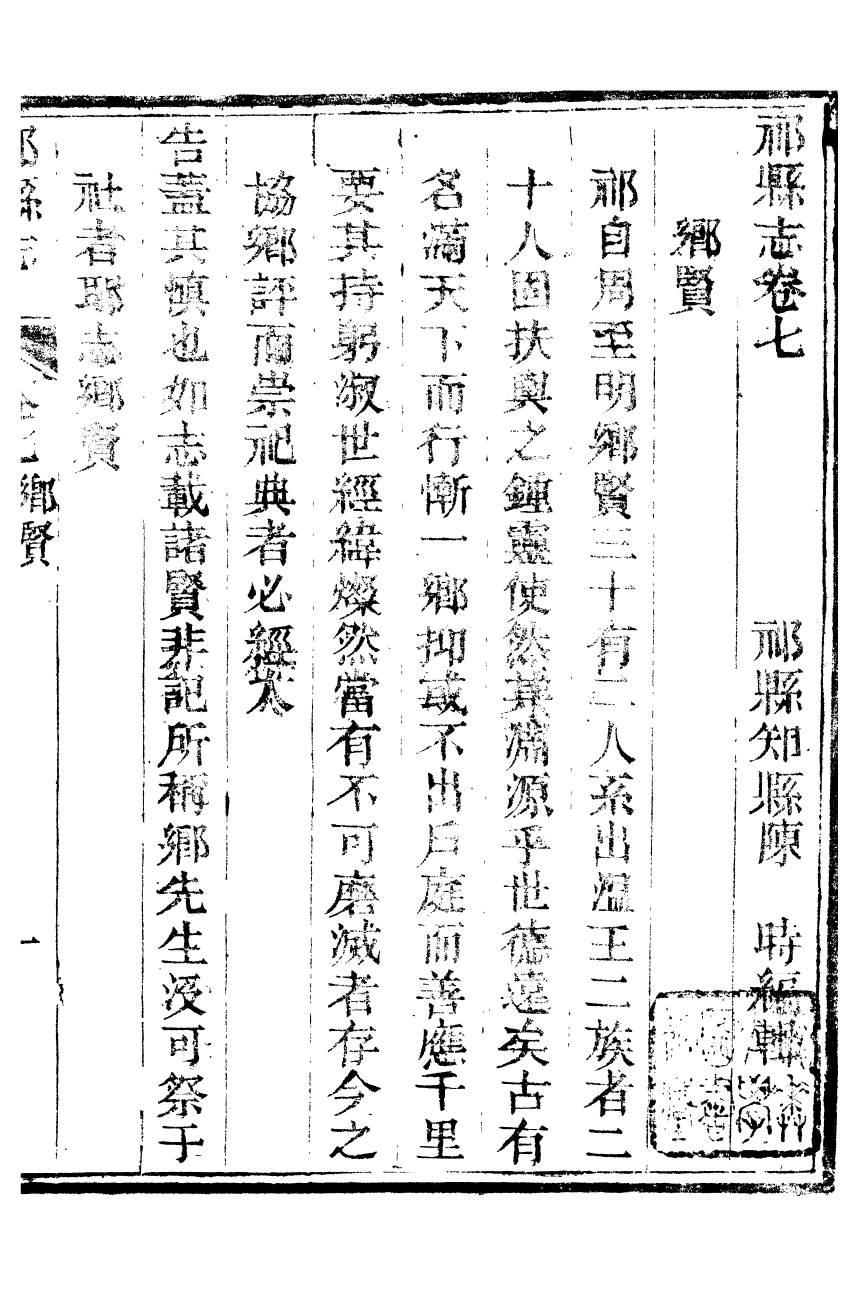 祁縣志卷七　祁縣知縣陳　時編輯
鄉賢
祁自周至明鄉賢三十有二人系出溫王二族者二
十人固扶輿之鍾靈使然其淵源乎世德遠矣古有
名滿天下而行慚一鄉抑或不出戶庭而善應千里
要其持躬淑世經緯燦然當有不可磨滅者存今之
協鄉評而崇祀典者必經入
告蓋其慎也如志載諸賢非記所稱鄉先生沒可祭于
社者耶志鄉賢
祁縣志　卷七鄉賢　一